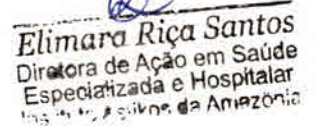 Elimara Riça Santos
Diretora de Ação em Saúde
Especializada e Hospitalar
da Amazônia